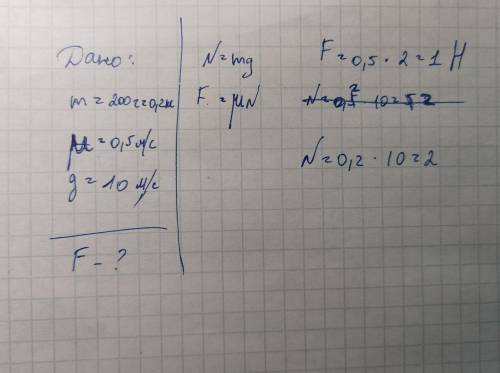 Дано:
m = 200г = 0,2кг
μ = 0,5 м/с
g = 10 м/с
F - ?
N = mg
F = μN
F = 0,5 · 2 = 1 Н
N = 0,2 · 10 = 2